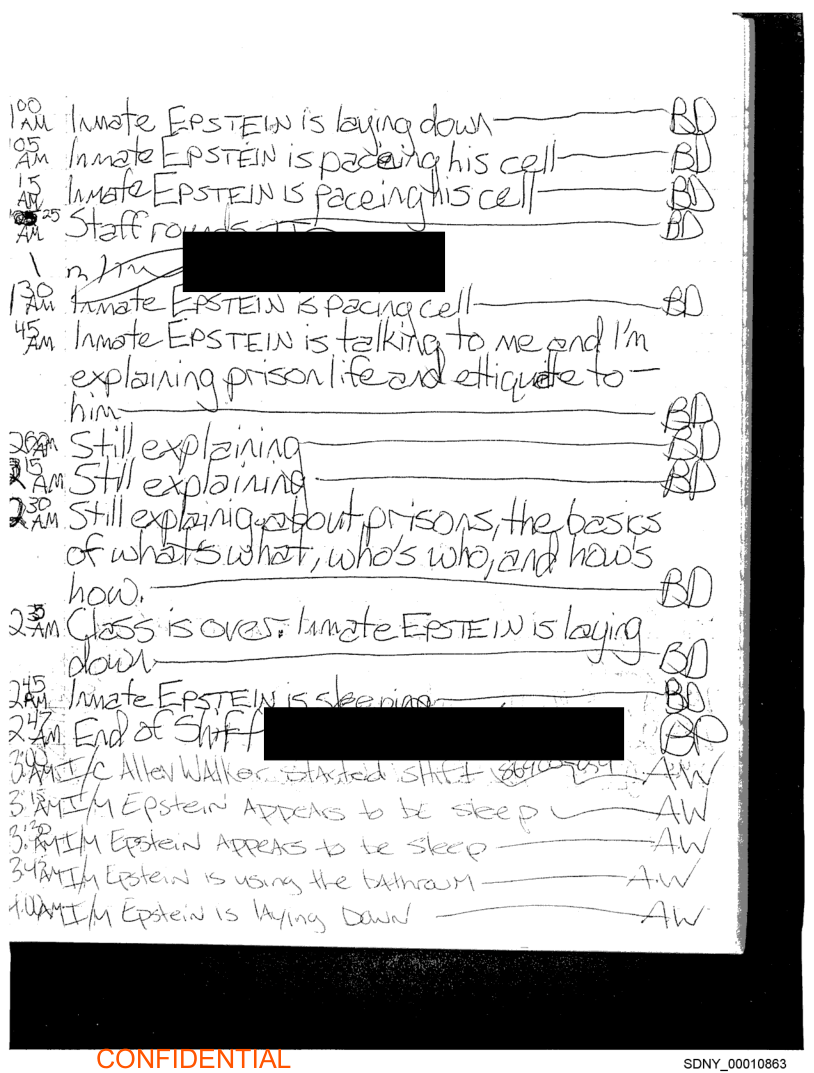 1:00 AM Inmate EPSTEIN is laying down BD
05 AM Inmate EPSTEIN is paceing his cell BD
15 AM Inmate EPSTEIN is paceing his cell BD
25 AM Staff rounds BD
1:30 AM Inmate EPSTEIN is pacing cell BD
45 AM Inmate EPSTEIN is talking to me and I'm
explaining prison life and ettiquite to
him BD
2:00 AM Still explaining BD
2:15 AM Still explaining BD
2:30 AM Still explainig about prisons, the basics
of what's what, who's who, and how's
how. BD
2:35 AM Class is over. Inmate EPSTEIN is laying
down BD
2:45 AM Inmate EPSTEIN is sleeping BD
2:47 AM End of Shift BD
3:00 AM I/C Allen WAlker stArted shift AW
3:15 AM I/M Epstein AppeArs to be sleep AW
3:30 AM I/M Epstein AppeArs to be sleep AW
AM I/M Epstein is using the bAthroom A.W
4:00 AM I/M Epstein is lAying Down AW
CONFIDENTIAL
SDNY_00010863